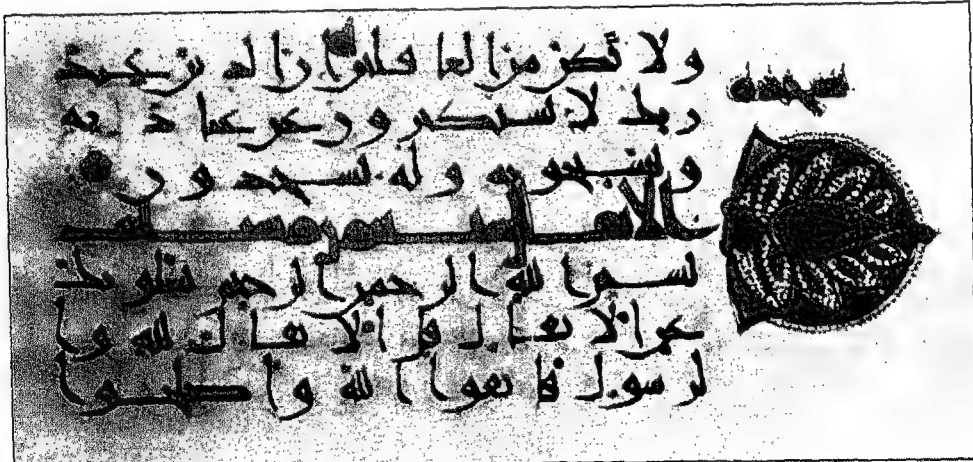 ولا تكن من الغفلين ان الذين عند
ربك لا يستكبرون عن عبادته
ويسبحونه وله يسجدون
الانفال
بسم الله الرحمن الرحيم يسلونك
عن الانفال قل الانفال لله وا
لرسول فاتقوا الله واصلحوا